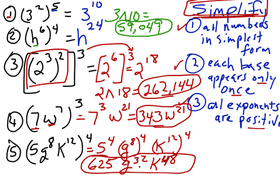 ① (3²)⁵ = 3¹⁰ 3^10 =
59,049
② (h⁶)⁴ = h²⁴
③ [(2³)²]³ = [2⁶]³ = 2¹⁸
2^18 = 262,144
④ (7w⁷)³ = 7³ w²¹ = 343w²¹
⑤ (5g⁸k¹²)⁴ = 5⁴ (g⁸)⁴ (k¹²)⁴
625 g³² k⁴⁸
Simplify
① all numbers
in simplest
form
② each base
appears only
once
③ all exponents
are positive